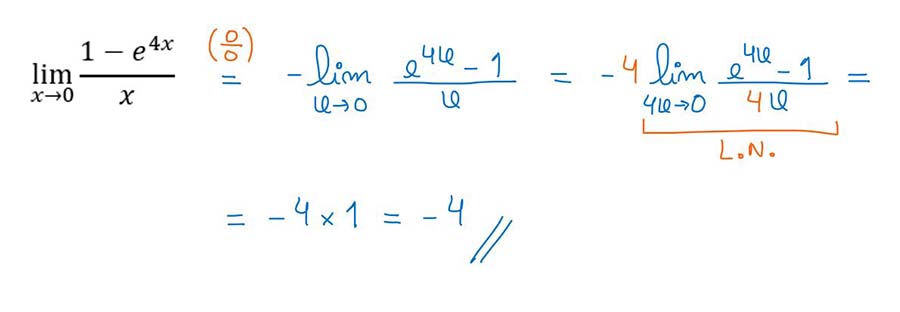 lim x→0 (1 − e^{4x})/x (0/0) = -lim x→0 (e^{4x} - 1)/x = -4 lim 4x→0 (e^{4x} - 1)/(4x) =
L.N.
= -4 × 1 = -4 //